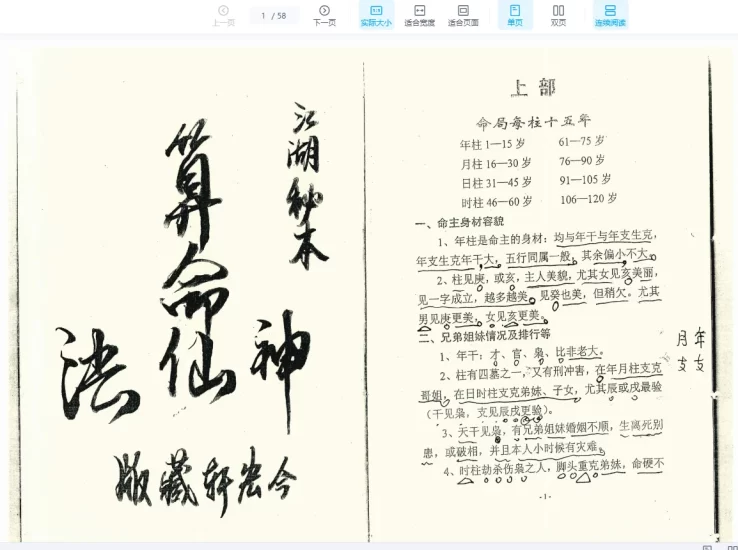 上一页
1 / 58
下一页
实际大小
适合宽度
适合页面
单页
双页
连续阅读
江湖秘本
神仙算命法
今宏轩藏版
上部
命局每柱十五年
年柱 1—15 岁 61—75 岁
月柱 16—30 岁 76—90 岁
日柱 31—45 岁 91—105 岁
时柱 46—60 岁 106—120 岁
一、命主身材容貌
1、年柱是命主的身材：均与年干与年支生克，
年支生克年干大，五行同属一般，其余偏小不大。
2、柱见庚，或亥，主人美貌，尤其女见亥美丽，
见一字成立，越多越美。见癸也美，但稍欠。尤其
男见庚更美，女见亥更美。
二、兄弟姐妹情况及排行等
1、年干：才、官、枭、比非老大。
2、柱有四墓之一，又有刑冲害，在年月柱支克
哥姐，在日时柱支克弟妹、子女，尤其辰或戌最验
（干见枭，支见辰戌更验）。
3、天干见枭，有兄弟姐妹婚姻不顺，生离死别
患，或破相，并且本人小时候有灾难。
4、时柱劫杀伤枭之人，脚头重克弟妹，命硬不
- 1 -
年支
月支